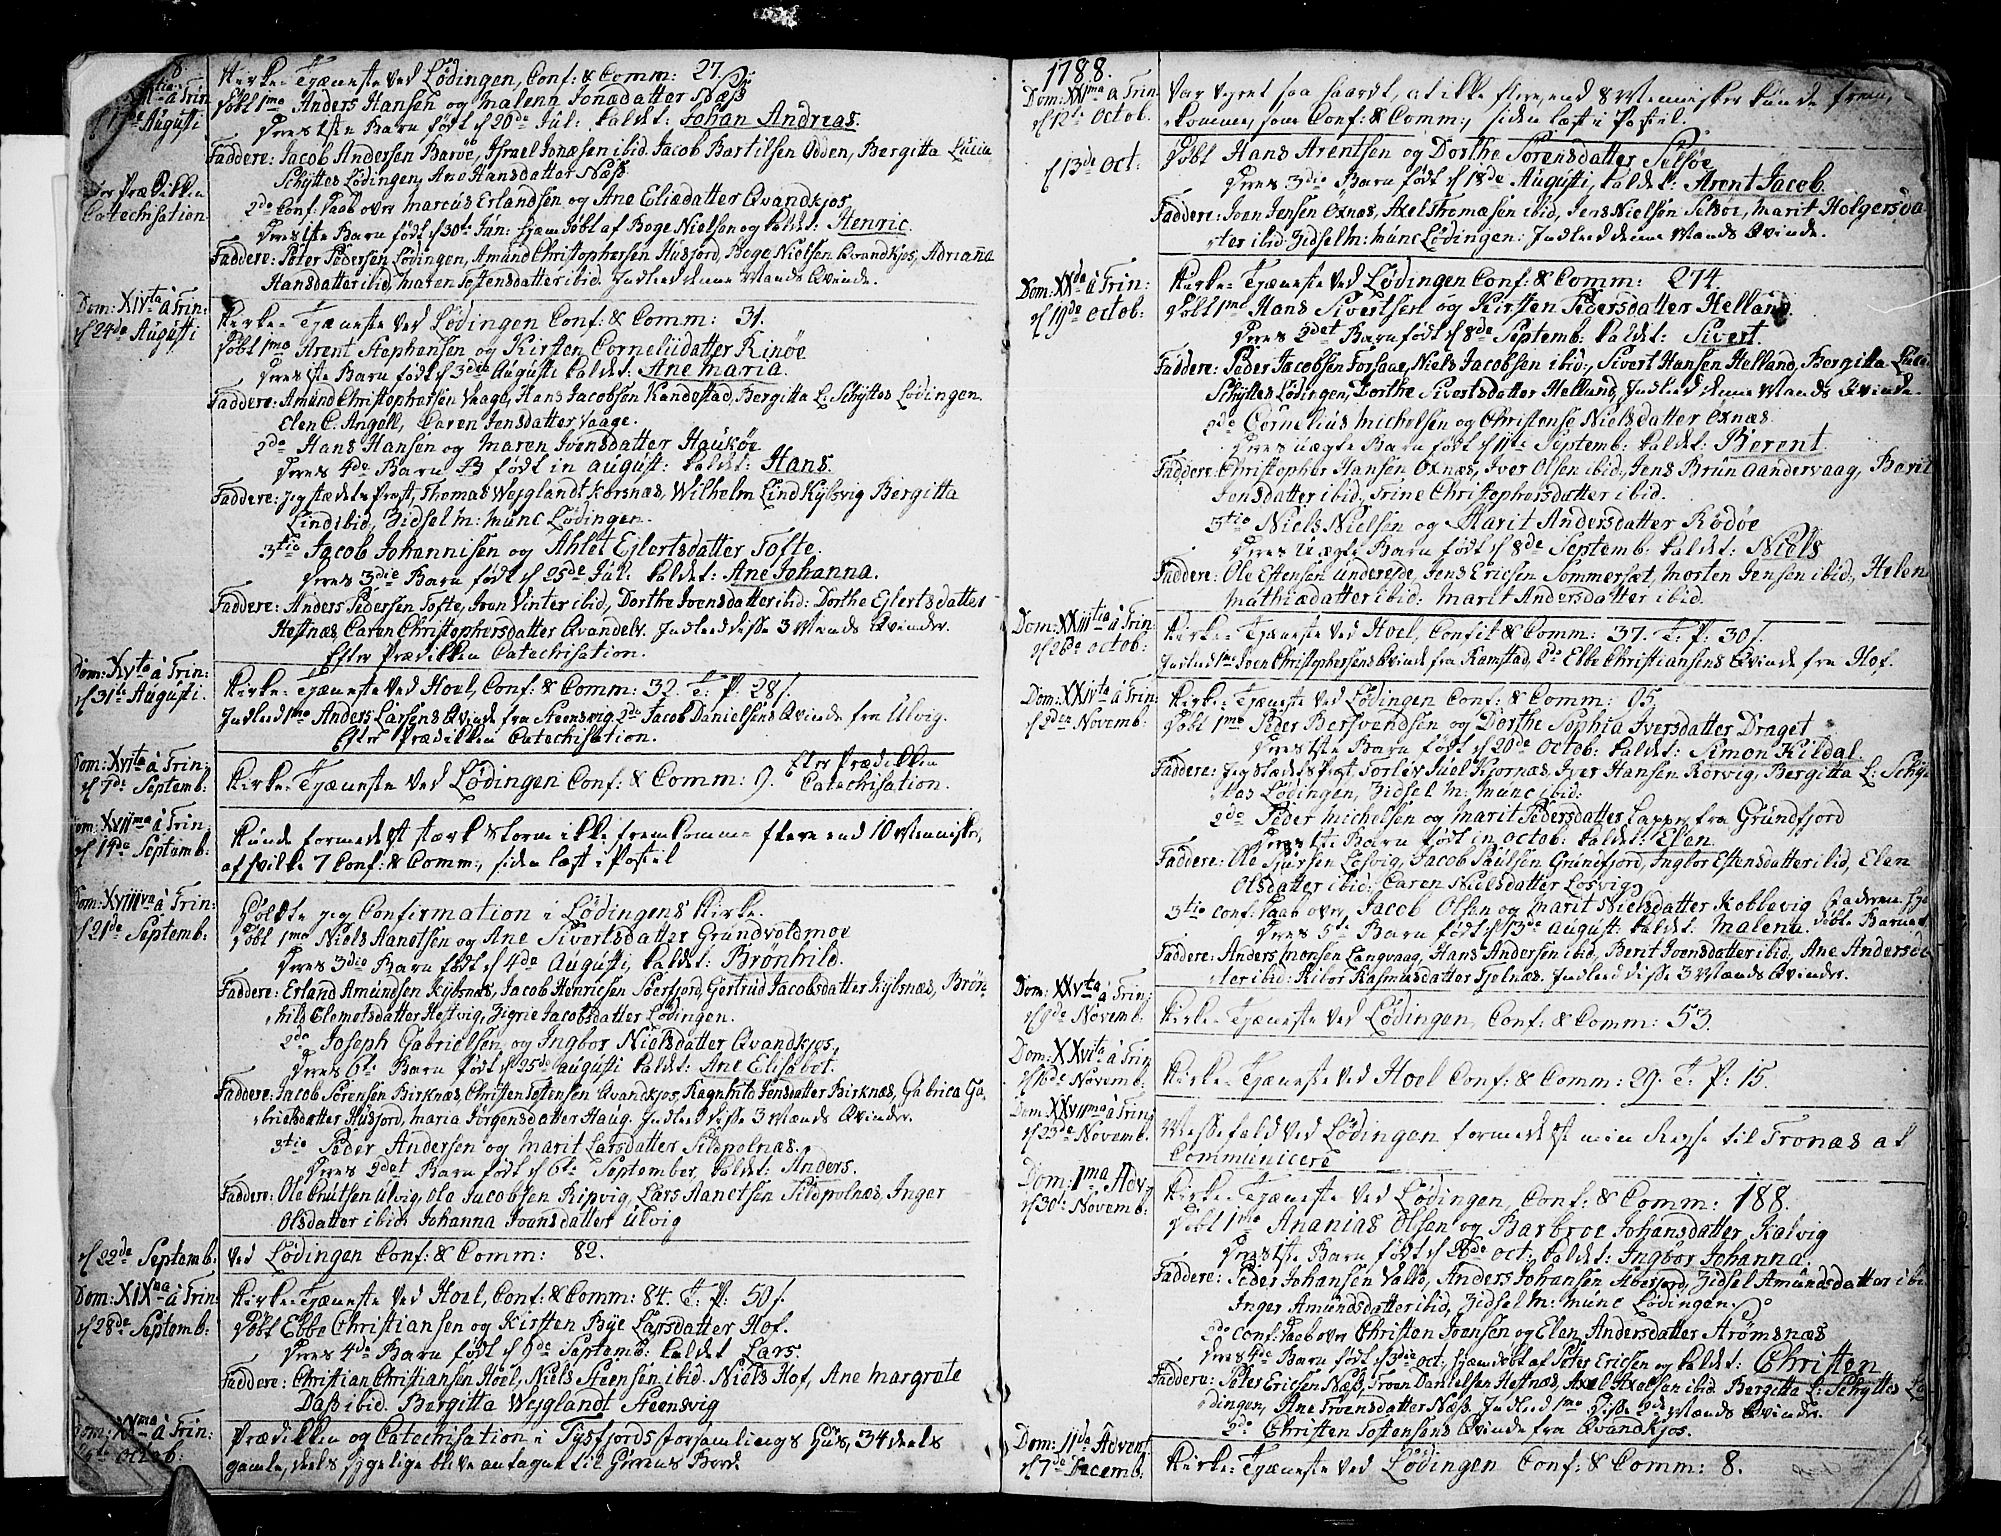 Kirke-Tjæneste ved Lødingen, Conf: & Comm: 27.
Døbt 1mo Anders Hansen og Malenn Jonædatter Næss
Deres 1ste Barn født d 20de Jul: kaldet: Johan Andreas.
17de Augusti
Faddere: Jacob Andersen Barøe, Israel Jonæsen ibid. Jacob Bartilsen Odden, Bergitta Lucia
Schyttes Lødingen, Ane Hansdatter Næss.
Prædikken
Catechisation
2do Conf: Daab over Marcus Erlandsen og Ane Eliædatter Qvandkjos
Deres 1ste Barn født d 30te Jun: hjemedøbt af Boge Nielsen og kaldet: Henric.
Faddere: Peter Pedersen Lødingen, Amund Christophersen Husjord, Boge Nielsen Qvandkjos, Adriana
Hansdatter ibid, Maren Tostensdatter ibid. Indleed denne Mands Qvinde.
Dom: XIVta à Trin:
d 24de Augusti
Kirke-Tjæneste ved Lødingen Conf: & Comm: 31.
Døbt 1mo Arent Stephensen og Kirsten Corneliidatter Rinøe
Deres 1ste Barn født d 3die Augusti kaldet: Ane Maria.
Faddere: Amund Christophersen Vaage, Hans Jacobsen Kandestad, Bergitta L: Schyttes Lødingen
Elen C. Angell, Caren Jensdatter Vaage.
2do Hans Hansen og Maren Ivensdatter Haukøe
Deres 4de Barn født in August: kaldet: Hans.
Faddere: Jeg stædets Præst, Thomas Wejglandt Korsnæs, Wilhelm Lind Kjibsvig Bergitta
Lind ibid, Zidsel M: Munc Lødingen.
3tio Jacob Johannisen og Ahlet Ejlertsdatter Tofte.
Deres 3die Barn født d 25de Jul: kaldet: Ane Johanna.
Faddere: Anders Pedersen Tofte, Iven Vinter ibid, Dorthe Ivensdatter ibid: Dorthe Ejlertsdatter
Hestnæs Caren Christophersdatter Qvandelv. Indleed disse 3 Mænds Qvinder.
Efter Prædikken Catechisation.
Dom: XVta à Trin:
d 31te Augusti.
Kirke-Tjæneste ved Hoel, Conf: & Comm: 32. T: P: 28 s.
Indleed 1mo Anders Larsens Qvinde fra Steensvig 2do Jacob Danielsens Qvinde fra Ulvig.
Efter Prædikken Catechisation.
Dom: XVIta à Trin:
d 7de Septemb:
Kirke-Tjæneste ved Lødingen Conf: & Comm: 9. Efter Prædikken
Catechisation.
Dom: XVIIma à Trin:
d 14de Septemb:
Kunde formedelst stærk storm ikke fremkomme flere end 10 Mennisker,
af hvilke 7 Conf: & Comm:, siden læst i Postil
Dom: XVIIIva à Trin:
d 21de Septemb:
Holdte jeg Confirmation i Lødingens Kirke.
Døbt 1mo Niels Aanetsen og Ane Sivertsdatter Grundvoldmoe
Deres 3die Barn født d 4de Augusti, kaldet: Brønhild.
Faddere: Erland Amundsen Kjibsnæs, Jacob Henricsen Søerfjord, Gertrud Jacobsdatter Kjibsnæs, Brøn-
hild Elemetsdatter Hestvig, Zigrie Jacobsdatter Lødingen.
2do Joseph Gabrielsen og Ingbor Nielsdatter Qvandkjos,
Deres 6te Barn født d 25de Augusti kaldet: Ane Elisabet.
Faddere: Jacob Sørensen Birknæs, Christen Tostensen Qvandkjos, Ragnhild Jonsdatter Birknæs, Gabrica Ga-
brielsdatter Husjord, Maria Jørgensdatter Haug. Indleed disse 3 Mænds Qvinder.
3tio Peder Andersen og Marit Larsdatter Sildpolnæs.
Deres 2det Barn født d 6te September, kaldet: Anders.
Faddere: Ole Cnutsen Ulvig, Ole Jacobsen Ripvig, Lars Aanetsen Sildpolnæs, Inger
Olsdatter ibid, Johanna Ivensdatter Ulvig
d 22de Septemb:
Ved Lødingen Conf: & Comm: 82.
Dom: XIXna à Trin:
d 28de Septemb:
Kirke-Tjæneste ved Hoel, Conf: & Comm: 84. T: P: 50 s.
Døbt Ebbe Christiansen og Kirsten Bye Larsdatter Hof.
Deres 4de Barn født d 9de Septemb: kaldet Lars.
Faddere: Christian Christiansen Hoel, Niels Steensen ibid: Niels Hof, Ane Margrete
Dass ibid. Bergitta Wejglandt Steensvig
Dom: XXma à Trin:
Octob:
Prædikken og Catechisation i Tysfjords forsamlings Huus, 34 deels
gamle, deels sygelige bleve antagne til Herrens Bord.
1788.
Dom: XXIma à Trin
d 12te Octob:
Var Veyret saa haardt, at ikke flere, end 8 Mennisker kunde frem-
komme, som Conf: & Comm:, siden læst i Postil.
d 13de Oct:
Døbt Hans Arentsen og Dorthe Sørensdatter Selsøe
Deres 3die Barn født d 18de Augusti, kaldet: Arent Jacob.
Faddere: Iven Jensen Oxnæs, Axel Thomæsen ibid, Jens Nielsen Selsøe, Marit Holgersda-
tter ibid: Zidsel M: Munc Lødingen: Indleed denne Mands Qvinde.
d 19de Octob:
Kirke-Tjæneste ved Lødingen Conf: & Comm: 274.
Døbt 1mo Hans Sivertsen og Kirsten Pedersdatter Helland
Deres 2det Barn født d 8de Septemb: kaldet: Sivert.
Faddere: Peder Jacobsen Forsaae, Niels Jacobsen ibid:, Sivert Hansen Helland, Bergitta Lucia
Schyttes Lødingen, Dorthe Sivertsdatter Helland, Indleed denne Mands Qvinde.
2do Cornelius Michelsen og Christense Nielsdatter Oxnæs.
Deres uægte Barn født d 11te Septemb: kaldet: Berent.
Faddere: Christopher Hansen Oxnæs, Iver Olsen ibid, Jens Brun Aandervaag, Barit
Jensdatter ibid, Trine Christophersdatter ibid.
3tio Niels Nielsen og Marit Andersdatter Rødøe
Deres uægte Barn født d 8de Septemb: kaldet: Niels
Faddere: Ole Estensen Undereide, Jens Ericsen Sommersæt, Morten Jensen ibid, Helen
Mathiædatter ibid: Marit Andersdatter ibid.
Dom: XXIIItia à Trin:
d 26de Octob:
Kirke-Tjæneste ved Hoel, Confit & Comm: 37. T: P: 30 s.
Indleed 1mo Iven Christophersens Qvinde fra Ramstad, 2do Ebbe Christiansens Qvinde fra Hof.
Dom: XXIVta à Trin:
d 2den Novemb:
Kirke-Tjæneste ved Lødingen Conf: & Comm: 65.
Døbt 1mo Peder Bersvendsen og Dorthe Sophia Iversdatter Draget
Deres 1ste Barn født d 20de Octob: kaldet: Simon Kildal.
Faddere: Jeg stædets Præst, Torlev Juel Kjørnæs, Iver Hansen Rørvig, Bergitta L: Schyt-
tes Lødingen, Zidsel M: Munc ibid:
2do Peder Michelsen og Marit Pedersdatter Lapper fra Grundfjord
Deres 1ste Barn født in Octob: kaldet: Elen.
Faddere: Ole Siursen Losvig, Jacob Paulsen Grundfjord, Ingbor Estensdatter ibid, Elen
Olsdatter ibid: Caren Nielsdatter Losvig.
3tio Conf: Daab over Jacob Olsen og Marit Nielsdatter Koblevig
Deres 5te Barn født d 13de August: kaldet: Malena.
Faddere: Anders Monsen Langvaag, Hans Andersen ibid, Berit Ivensdatter ibid, Ane Andersda-
tter ibid: Kilor Rasmusdatter Tjelnæs. Indleed disse 3 Mænds Qvinder.
Dom: XXVta à Trin:
d 9de Novemb:
Kirke-Tjæneste ved Lødingen, Conf: & Comm: 53.
Dom: XXVIta à Trin:
d 16de Novemb:
Kirke-Tjæneste ved Hoel Conf: & Comm: 29. T: P: 15.
Dom: XXVIIma à Trin:
d 23de Novemb:
Messefald ved Lødingen formedelst min Reyse til Tronæs at
Communicere
Dom: 1ma Adv:
d 30te Novemb:
Kirke-Tjæneste ved Lødingen, Conf: & Comm: 188.
Døbt 1mo Ananias Olsen og Barbroe Johansdatter Kalvig
Deres 1ste Barn født d 26de Oct: kaldet: Ingbor Johanna.
Faddere: Peder Johansen Valle, Anders Johansen Åbersjord, Zidsel Amundsdatter ibid
Inger Amundsdatter ibid, Zidsel M: Munc Lødingen.
2do Conf: Daab over Christen Ivensen og Elen Andersdatter Strømsnæs
Deres 4de Barn født d 3die Oct: hjemedøbt af Peter Ericsen og kaldet: Christen
Faddere: Peter Ericsen Næss, Troen Danielsen Hestnæs, Axel Axelsen ibid. Bergitta L: Schyttes Lø-
dingen, Ane Troensdatter Næss. Indleed 1mo disse 2de Mænds Qvinder.
2do Christen Tostensens Qvinde fra Qvandkjos.
Dom: IIda Advent
d 7de Decemb:
Kirke-Tjæneste ved Lødingen Conf: & Comm: 8.